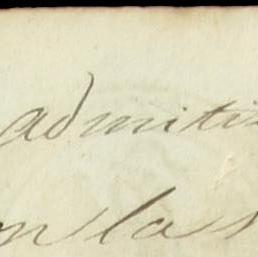 admiti
n las